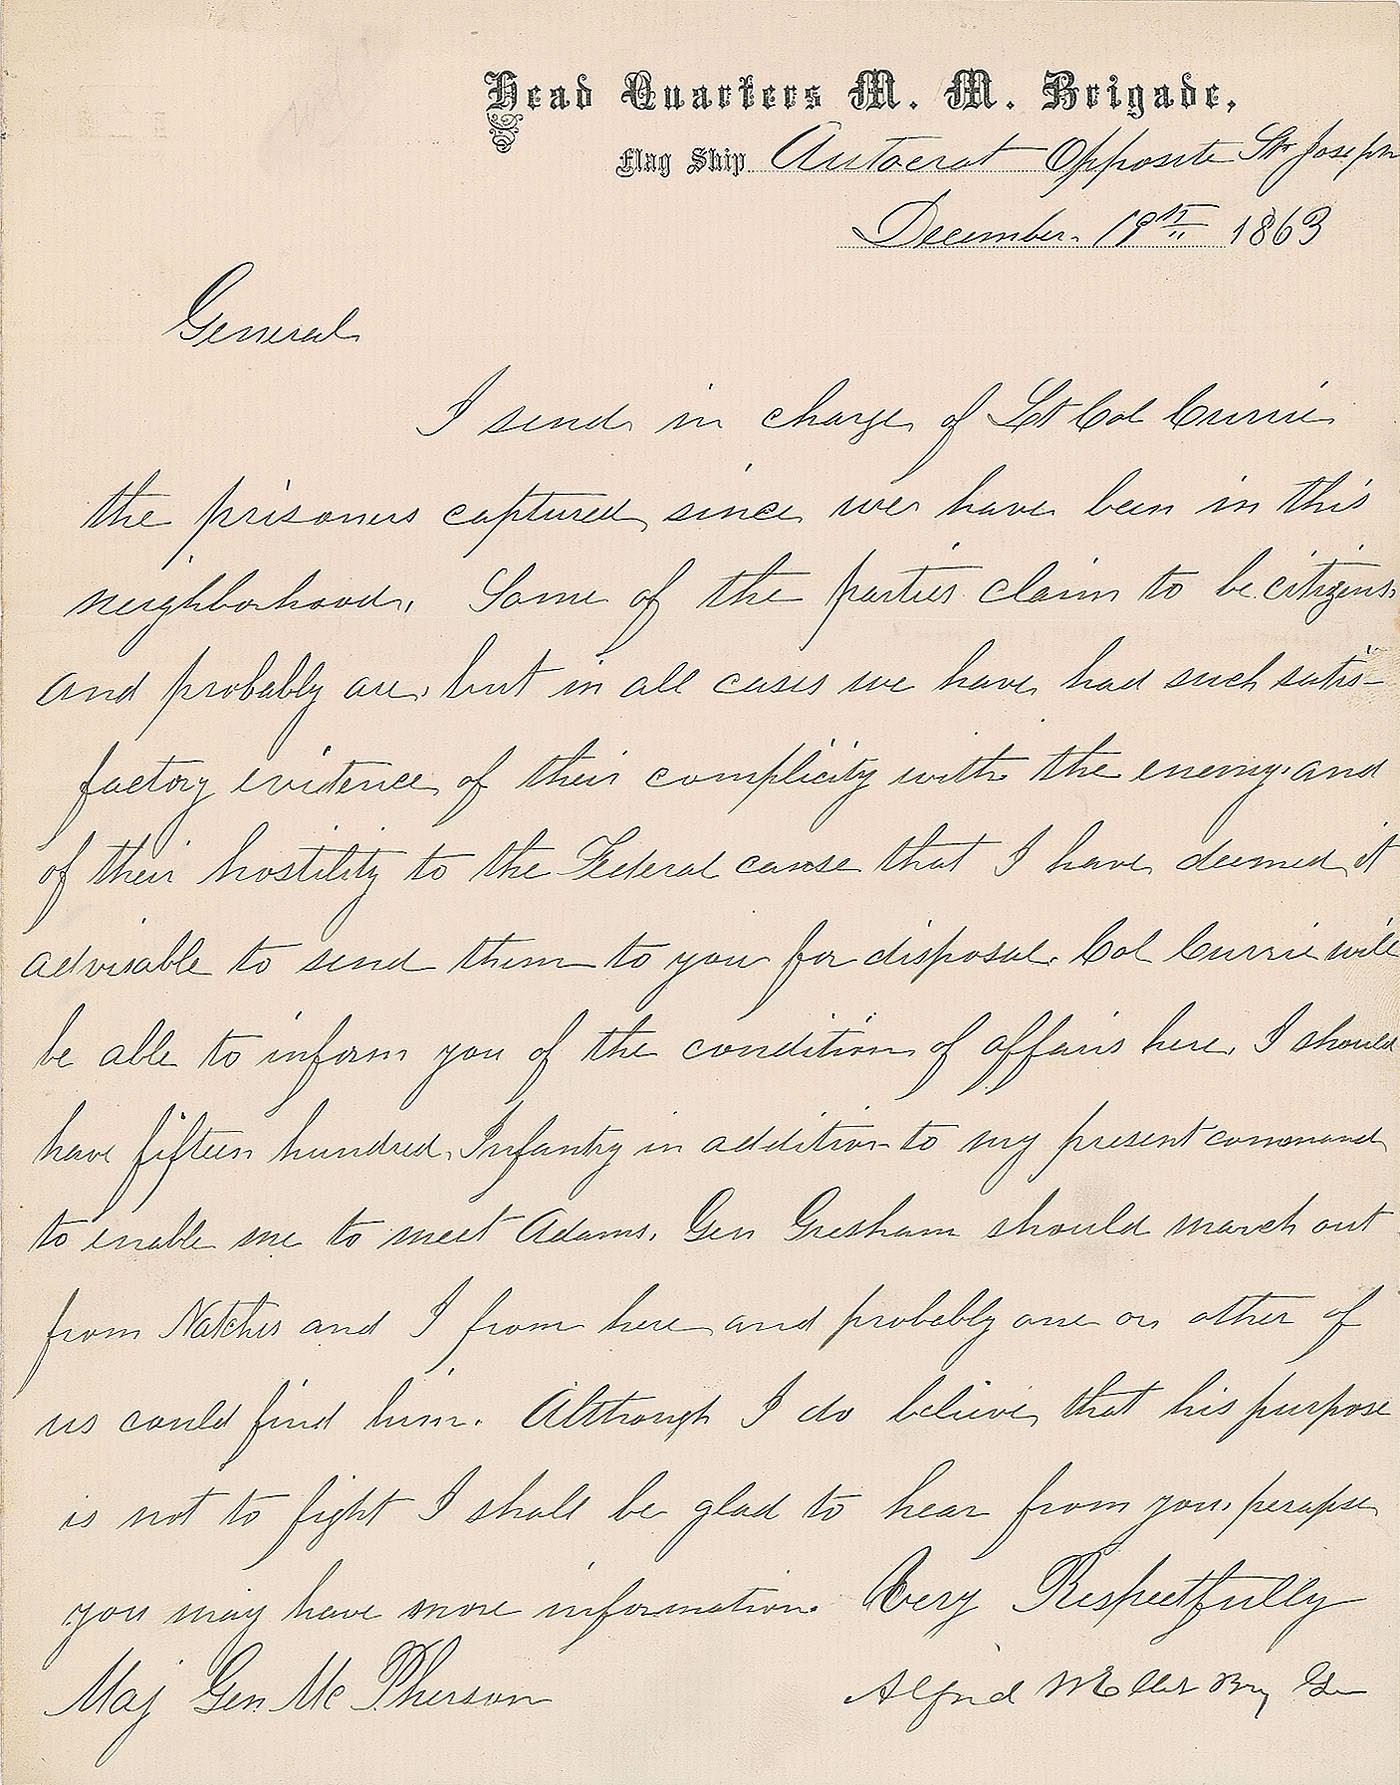 Head Quarters M. M. Brigade,
Flag Ship Autocrat Opposite St Joseph
December 19th 1863
General
I send in charge of Lt Col Currie
the prisoners captured since we have been in this
neighborhood. Some of the parties claim to be citizens
and probably are, but in all cases we have had such satis-
factory evidence of their complicity with the enemy and
of their hostility to the Federal cause that I have deemed it
advisable to send them to you for disposal. Col Currie will
be able to inform you of the condition of affairs here. I should
have fifteen hundred Infantry in addition to my present command
to enable me to meet Adams. Gen Gresham should march out
from Natches and I from here and probably one or other of
us could find him. Although I do believe that his purpose
is not to fight I shall be glad to hear from you. perapse
you may have more information. Very Respectfully
Maj Gen Mc Pherson
Alfred W Ellet Brig Gen